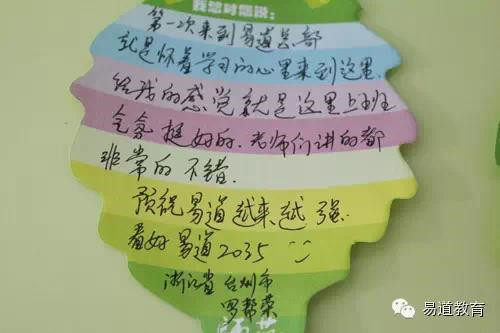 我想对您说:
第一次来到易道总部
就是怀着学习的心里来到这里.
给我的感觉就是这里上班
气氛挺好的.老师们讲的都
非常的不错.
预祝易道越来越强.
看好易道2035
浙江省台州市
罗帮荣
易道教育